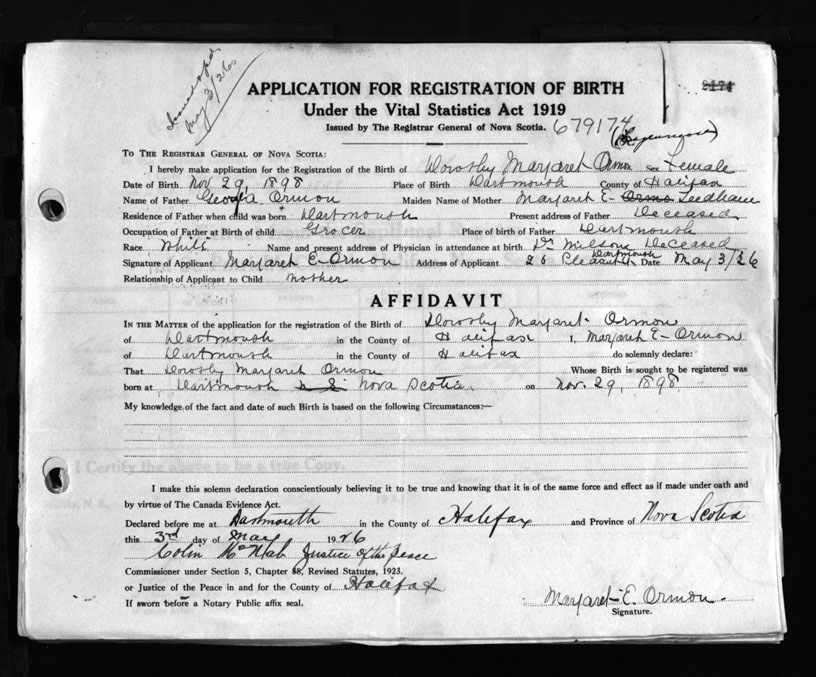 May 3/26
9174
APPLICATION FOR REGISTRATION OF BIRTH
Under the Vital Statistics Act 1919
Issued by The Registrar General of Nova Scotia. 679174
TO THE REGISTRAR GENERAL OF NOVA SCOTIA:
I hereby make application for the Registration of the Birth of Dorothy Margaret Ormon Sex Female
Date of Birth Nov 29, 1898 Place of Birth Dartmouth County of Halifax
Name of Father Ormon Maiden Name of Mother Margaret E- Leedham
Residence of Father when child was born Dartmouth Present address of Father Deceased
Occupation of Father at Birth of child Grocer Place of birth of Father Dartmouth
Race White Name and present address of Physician in attendance at birth Dr Deceased
Signature of Applicant Margaret E- Ormon Address of Applicant 26 Dartmouth Date May 3/26
Relationship of Applicant to Child Mother
AFFIDAVIT
IN THE MATTER of the application for the registration of the Birth of Dorothy Margaret Ormon
of Dartmouth in the County of Halifax I, Margaret E- Ormon
of Dartmouth in the County of Halifax do solemnly declare:
That Dorothy Margaret Ormon Whose Birth is sought to be registered was
born at Dartmouth Nova Scotia on Nov. 29, 1898
My knowledge of the fact and date of such Birth is based on the following Circumstances:—
I Certify the above to be a true Copy.
I make this solemn declaration conscientiously believing it to be true and knowing that it is of the same force and effect as if made under oath and
by virtue of The Canada Evidence Act.
Declared before me at Dartmouth in the County of Halifax and Province of Nova Scotia
this 3rd day of May 1926
Colin McNab Justice of the peace
Commissioner under Section 5, Chapter 38, Revised Statutes, 1923.
or Justice of the Peace in and for the County of Halifax
If sworn before a Notary Public affix seal.
Margaret E. Ormon.
Signature.